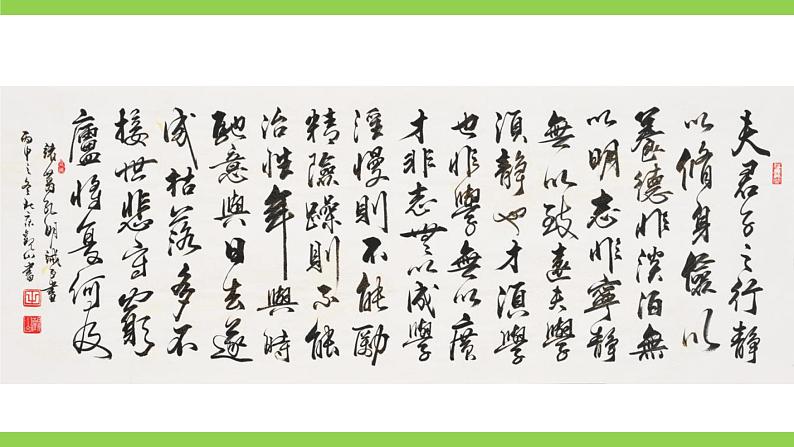 夫君子之行靜
以脩身儉以
養德非淡泊無
以明志非寧靜
無以致遠夫學
須靜也才須學
也非學無以廣
才非志無以成學
淫慢則不能勵
精險躁則不能
治性年與時
馳意與日去遂
成枯落多不
接世悲守窮
廬將復何及
諸葛孔明誡子書
丙申之冬北京觀山書